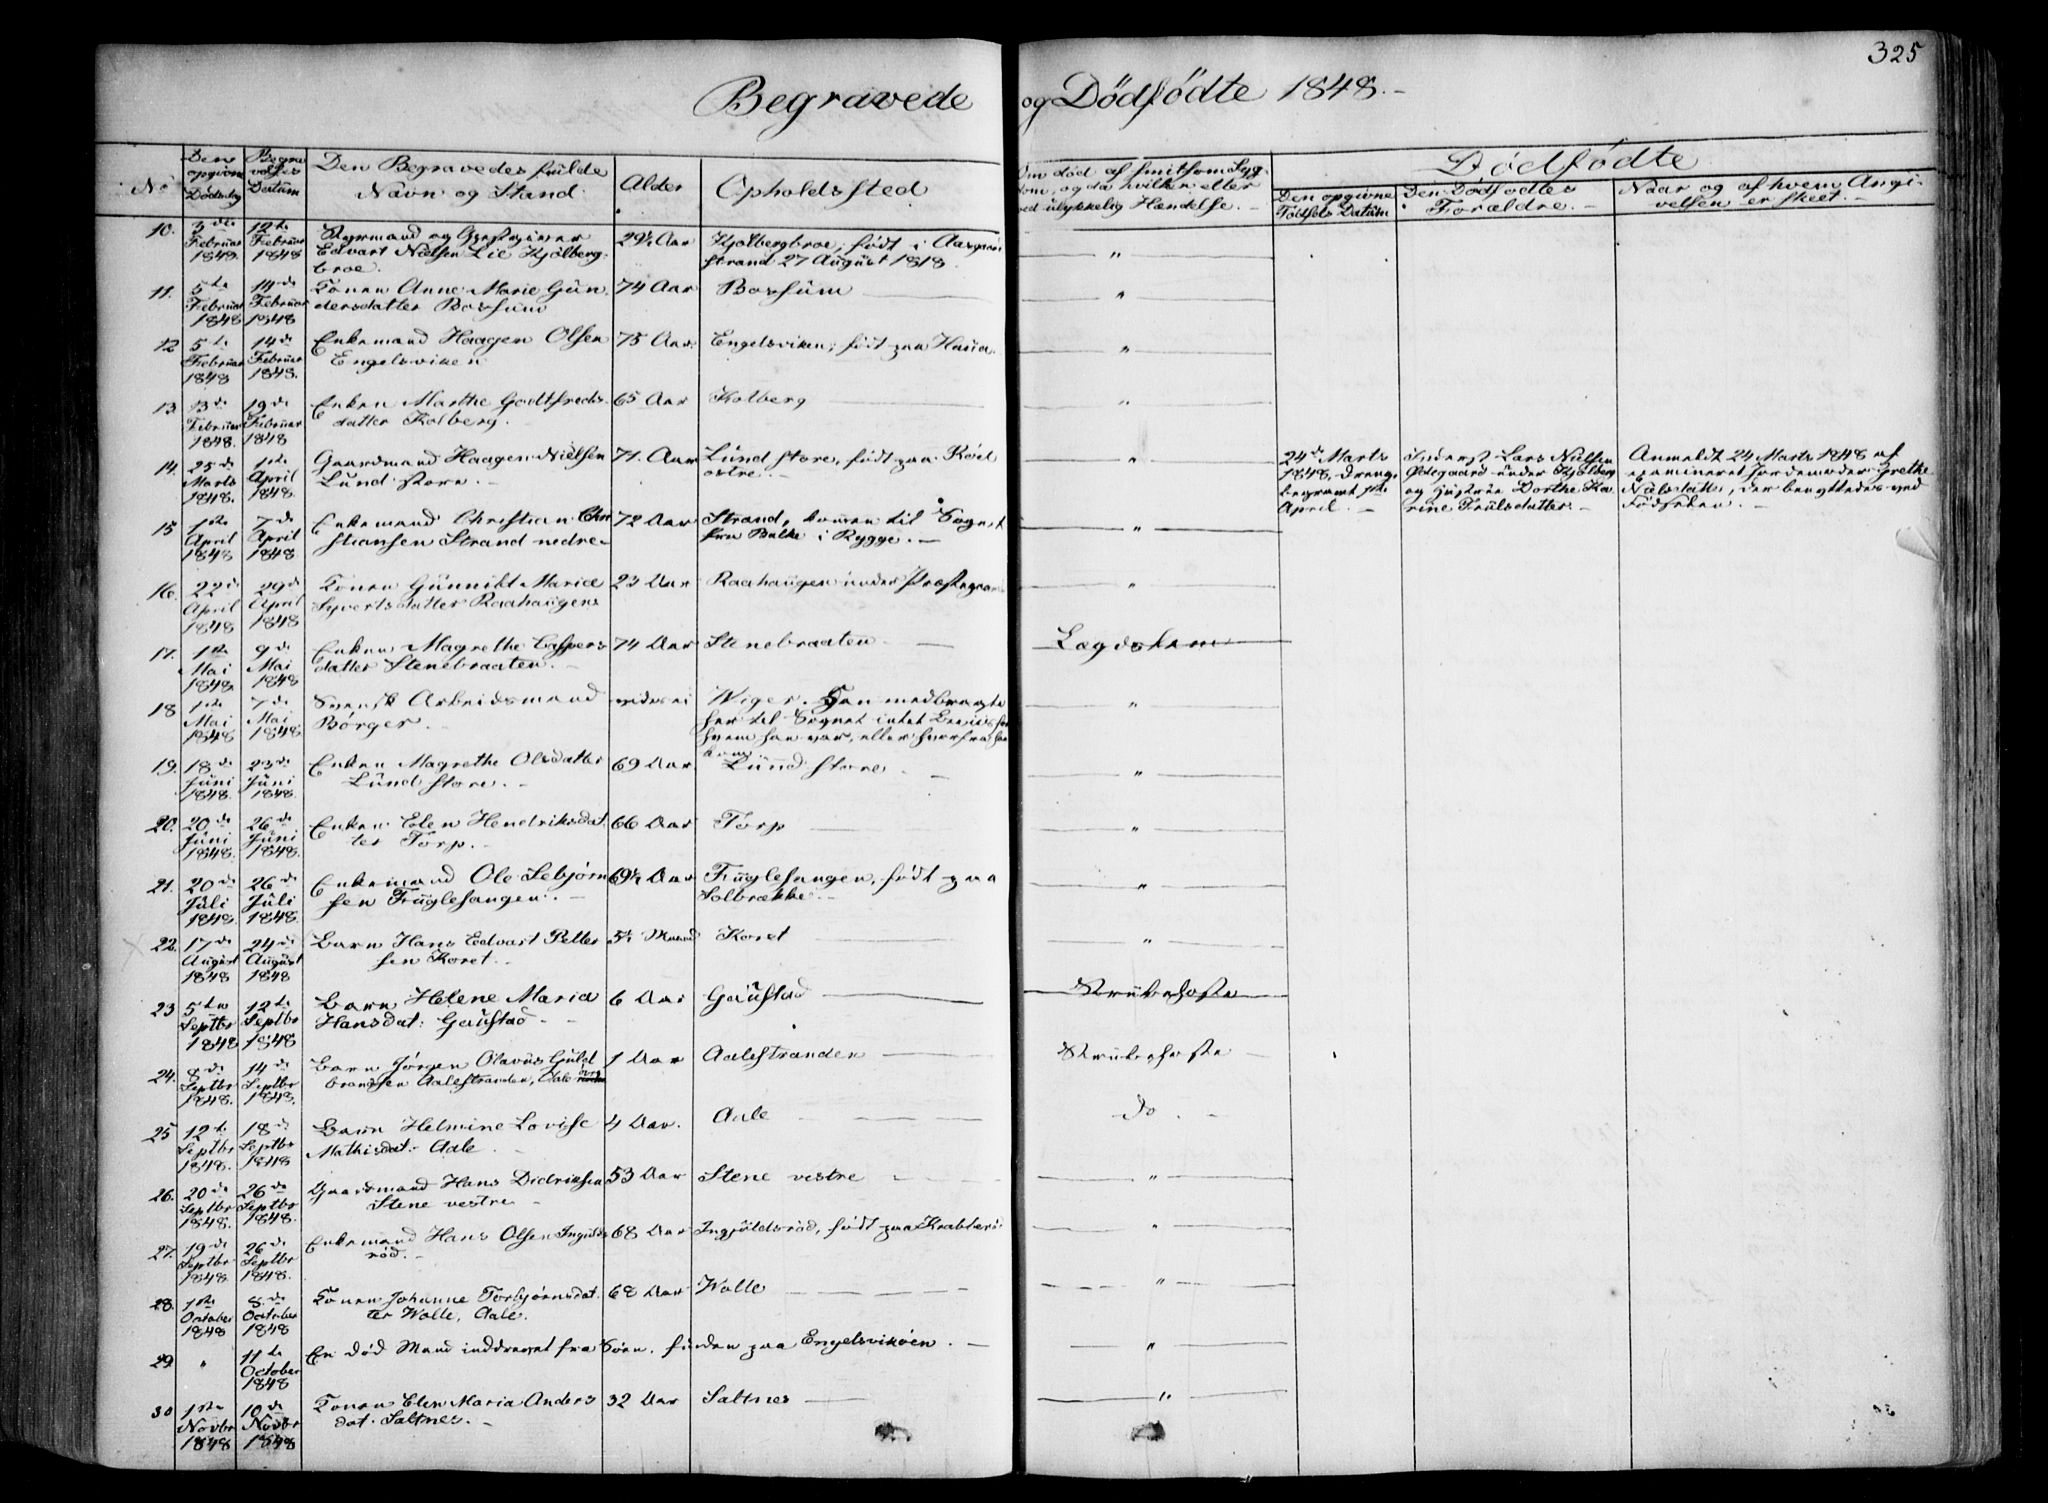 325
Begravede og Dödfödte 1848.-
No
Den opgivne Dødsdag
Begravelses Datum
Den Begravedes fulde Navn og Stand
Alder
Opholdssted
Om død af smitsom Sygdom, og da hvilken eller ved ulykkelig Hændelse.-
Dødfødte
Den opgivne Fødsels Datum
Den Dødfødtes Forældre.-
Naar og af hvem Angivelsen er skeet.-
10. 5de Februar 1848. 12te Februar 1848
Edvart Nielsen Lie Kjølbergbroe.
29½ Aar
Kjølbergbroe, født i Aasgaardstrand 27 August 1818.
"
11. 5te Februar 1848 14de Februar 1848
Konen Anne Marie Gundersdatter Bossum
74 Aar
Bossum
"
12 5te Februar 1848 14de Februar 1848.
Enkemand Haagen Olsen Engelsviken
75 Aar
Engelsviken, født paa Haua.
"
13. 13de Februar 1848. 19de Februar 1848
Enken Marthe Godtfredsdatter Kolberg.
65 Aar
Kolberg
"
14. 25de Marts 1848. 1ste April 1848.
Gaardmand Haagen Nielsen Lund store.
71. Aar
Lund store, født paa Röed østre.-
"
24de Marts 1848, Dreng, begravet 1ste April.-
Inderst Lars Nielsen Ødegaard under Kjølberg og Hustrue Dorthe Karine Trulsdatter.-
Anmeldt 24 Marts 1848 af examineret Jordemoder Grethe Nielsdatter, der benyttedes ved Fødselen.-
15 1ste April 1848 7de April 1848
Enkemand Christian Christiansen Strand nedre-
72 Aar
Strand, kommen til Sognet fra Balke i Rygge.-
"
16. 22de April 1848 29de April 1848
Konen Gunnild Maria Syvertsdatter Raahaugen
23 Aar
Raahaugen under Præstegaard
"
17. 1ste Mai 1848. 9de Mai 1848
Enken Magrethe Caspersdatter Stenebraaten.
74 Aar
Stenebraaten
Lægdslem
18 1ste Mai 1848 7de Mai 1848.
Svensk Arbeidsmand Börger.
vides ei
Wiger. Han medbragte her til Sognet intet Beviis for hvem han var, eller hvorfra han kom.
"
19. 18de Juni 1848. 23de Juni 1848.
Enken Magrethe Olsdatter Lund store.-
69 Aar
Lund store
"
20. 20de Juni 1848. 26de Juni 1848.
Enken Elen Hendriksdatter Torp.-
66 Aar
Torp
"
21. 20de Juli 1848 26de Juli 1848.
Enkemand Ole Sebjørnsen Fuglesangen.
69½ Aar
Fuglesangen, født paa Solbrække.-
"
22. 17de August 1848 24de August 1848
Barn Hans Edvart Pettersen Koret.
Koret
"
23 5te Septbr 1848 12te Septbr 1848
Barn Helene Maria Hansdat: Gaustad.
6 Aar
Gaustad
Strubehoste
24. 8de Septbr 1848. 14de Septbr 1848.
Barn Jørgen Olavus Guldbrandsen Aalestranden, Aale
1 Aar
Aalestranden
Strubehoste
25 12te Septbr 1848. 18de Septbr 1848
Barn Helmine Lovise Mathisdat:- Aale
4 Aar.
Aale
do.
26. 20de Septbr 1848. 26de Septbr 1848.
Gaardmand Hans Didriksen Stene vestre
53 Aar
Stene vestre
"
27. 19de Septbr 1848 26de Septbr 1848.
Enkemand Hans Olsen Ingulds rød.-
68 Aar
Ingjöldsröd, født paa Krabberød
"
28. 1ste October 1848 8de October 1848
Konen Johanne Torbjørnsdatter Walle, Aale.
68 Aar
Walle
"
29. " 11te October 1848
En død Mand inddraget fra Söen, funden paa Engelsviköen.-
"
30 1ste Novbr 1848 10de Novbr 1848
Konen Elen Maria Andersdat. Saltnes.-
32 Aar
Saltnes
"